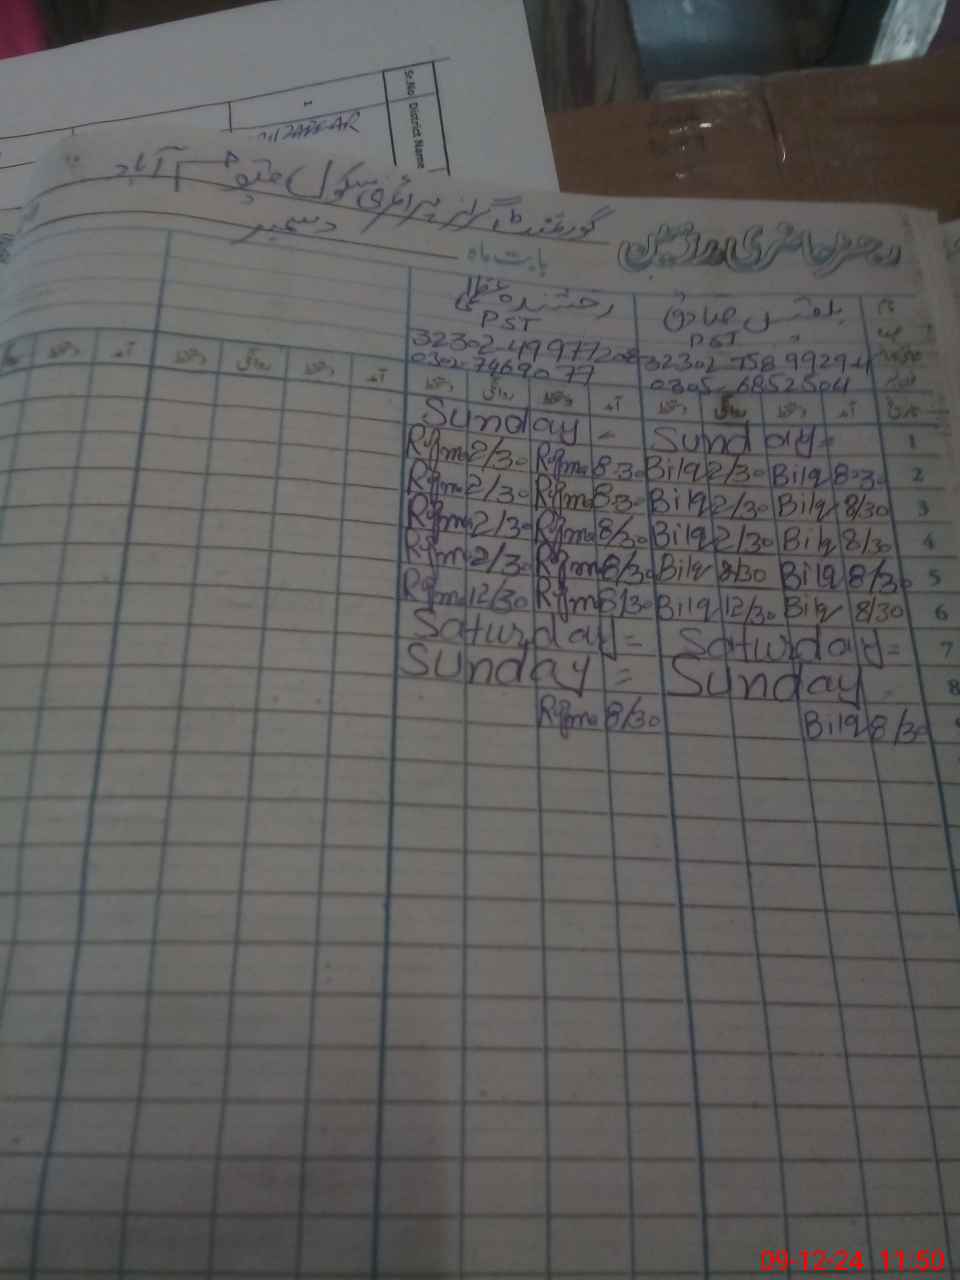 Sr.No District Name
1
گورنمنٹ گرلز پرائمری سکول
رجسٹر حاضری مدرسین
بابت ماہ دسمبر
بلقیس صادق
رخشندہ
PST
PST
32302
0302-7469077
32302-758 9929-4
0305-6852504
تاریخ آمد دستخط روانگی دستخط آمد دستخط روانگی دستخط آمد دستخط روانگی دستخط آمد
1 Sunday - Sunday =
2 8.30 Bilq 2/30 Bilq 8.30 Rqma 2/30 Rqma
3 8/30 Bilq 2/30 Bilq 8.30 Rqma 2/30 Rqma
4 8/30 Bilq 2/30 Bilq 8/30 Rqma 2/30 Rqma
5 8/30 Bilq 2/30 Bilq 8/30 Rqma 2/30 Rqma
6 8/30 Bilq 12/30 Bilq 8/30 Rqma 12/30 Rqma
7 Saturday = Saturday =
8 Sunday = Sunday
8/30 Bilq 8/30 Rqma
09-12-24 11:50